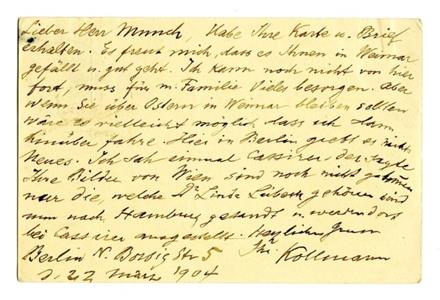 Lieber Herr Munch, Habe Ihre Karte u. Brief
erhalten. Es freut mich, dass es Ihnen in Weimar
gefällt u. gut geht. Ich kann noch nicht von hier
fort, muss für m. Familie Vieles besorgen. Aber
wenn Sie über Ostern in Weimar bleiben sollten
wäre es vielleicht möglich dass ich dann
hinüber fahre. Hier in Berlin giebt es nichts
Neues. Ich sah einmal Cassirer, der sagte
Ihre Bilder von Wien sind noch nicht gekommen
nur die, welche Dr Linde Lübeck gehören sind
nun nach Hamburg gesandt u. werden dort
bei Cassirer ausgestellt. Herzlichen Gruss
Berlin N. Borsig Str 5 Ihr Kollmann
d. 22 März 1904